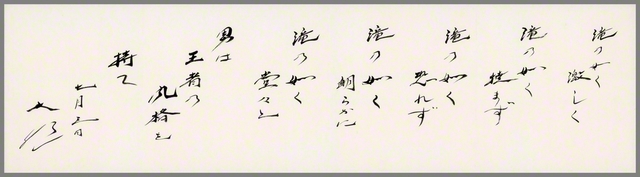 滝の如く
激しく
滝の如く
撓まず
滝の如く
恐れず
滝の如く
朗らかに
滝の如く
堂々と
男は
王者の
風格を
持て
七月三日
大作